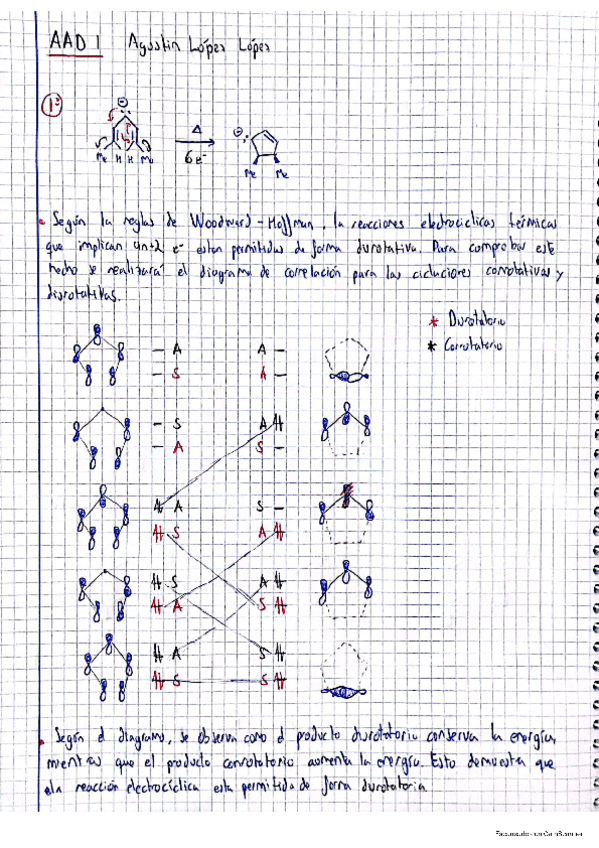 AAD 1 Agustín López López
1º
Δ
6e⁻
Me H H Me
Me Me
• Según la reglas de Woodward-Hoffman, la reacciones electrocíclicas térmicas
que implican 4n+2 e⁻ estan permitidas de forma disrotativa. Para comprobar este
hecho se realizará el diagrama de correlación para las ciclaciones conrotativas y
disrotativas.
* Disrotatorio
* Conrotatorio
- A A -
- S A -
- S A
- A S -
A S -
S A
S A
A S
A S
S S
• Según el diagrama, se observa como el producto disrotatorio conserva la energía,
mientras que el producto conrotatorio aumenta la energía. Esto demuestra que
la reacción electrocíclica esta permitida de forma disrotatoria